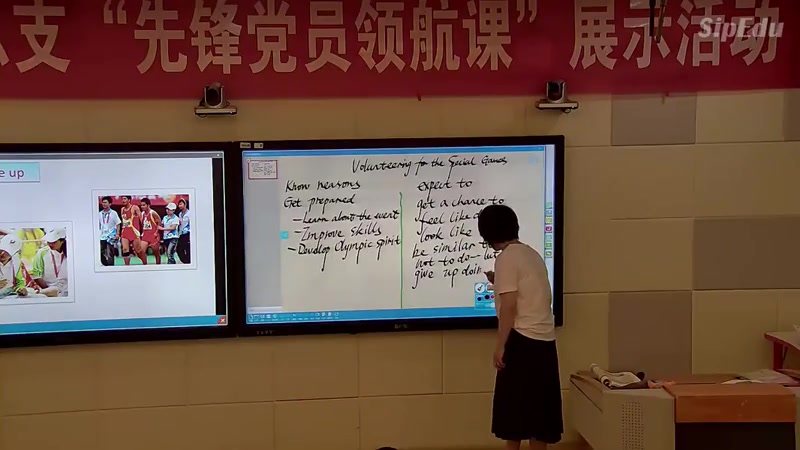 支“先锋党员领航课”展示活动
SipEdu
e up
Volunteering for the Special Games
Know reasons
Get prepared
—Learn about the event
—Improve skills
—Develop Olympic spirit
expect to
get a chance to
feel like
look like
be similar
not to do — but
give up doin